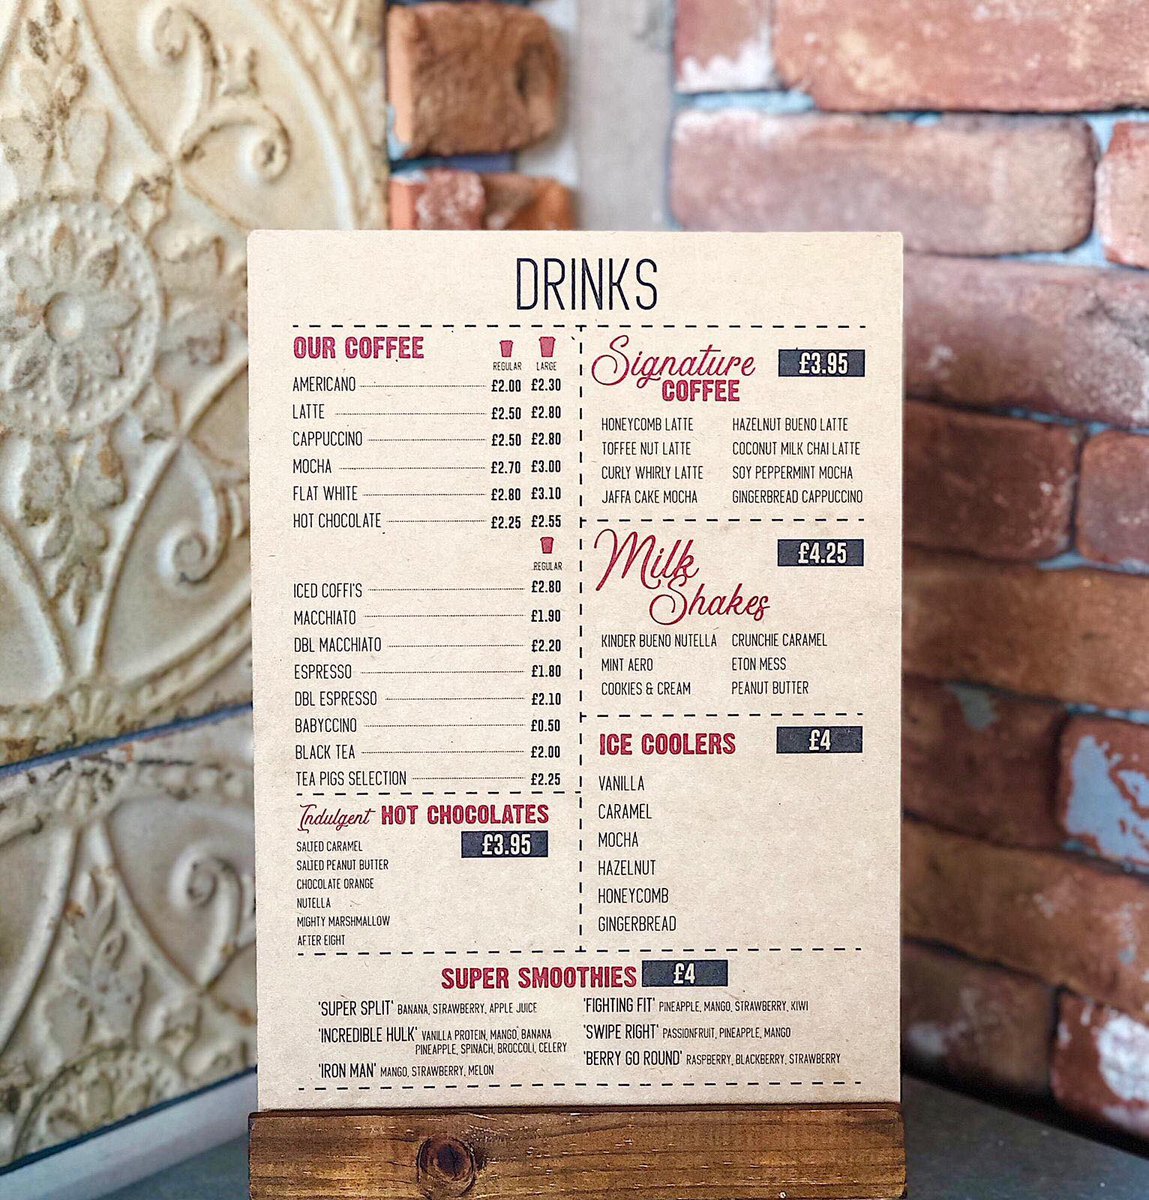 DRINKS
OUR COFFEE
REGULAR LARGE
AMERICANO £2.00 £2.30
LATTE £2.50 £2.80
CAPPUCCINO £2.50 £2.80
MOCHA £2.70 £3.00
FLAT WHITE £2.80 £3.10
HOT CHOCOLATE £2.25 £2.55
REGULAR
ICED COFFI'S £2.80
MACCHIATO £1.90
DBL MACCHIATO £2.20
ESPRESSO £1.80
DBL ESPRESSO £2.10
BABYCCINO £0.50
BLACK TEA £2.00
TEA PIGS SELECTION £2.25
Indulgent HOT CHOCOLATES
£3.95
SALTED CARAMEL
SALTED PEANUT BUTTER
CHOCOLATE ORANGE
NUTELLA
MIGHTY MARSHMALLOW
AFTER EIGHT
Signature £3.95
COFFEE
HONEYCOMB LATTE HAZELNUT BUENO LATTE
TOFFEE NUT LATTE COCONUT MILK CHAI LATTE
CURLY WHIRLY LATTE SOY PEPPERMINT MOCHA
JAFFA CAKE MOCHA GINGERBREAD CAPPUCCINO
Milk £4.25
Shakes
KINDER BUENO NUTELLA CRUNCHIE CARAMEL
MINT AERO ETON MESS
COOKIES & CREAM PEANUT BUTTER
ICE COOLERS £4
VANILLA
CARAMEL
MOCHA
HAZELNUT
HONEYCOMB
GINGERBREAD
SUPER SMOOTHIES £4
'SUPER SPLIT' BANANA, STRAWBERRY, APPLE JUICE
'INCREDIBLE HULK' VANILLA PROTEIN, MANGO, BANANA
PINEAPPLE, SPINACH, BROCCOLI, CELERY
'IRON MAN' MANGO, STRAWBERRY, MELON
'FIGHTING FIT' PINEAPPLE, MANGO, STRAWBERRY, KIWI
'SWIPE RIGHT' PASSIONFRUIT, PINEAPPLE, MANGO
'BERRY GO ROUND' RASPBERRY, BLACKBERRY, STRAWBERRY